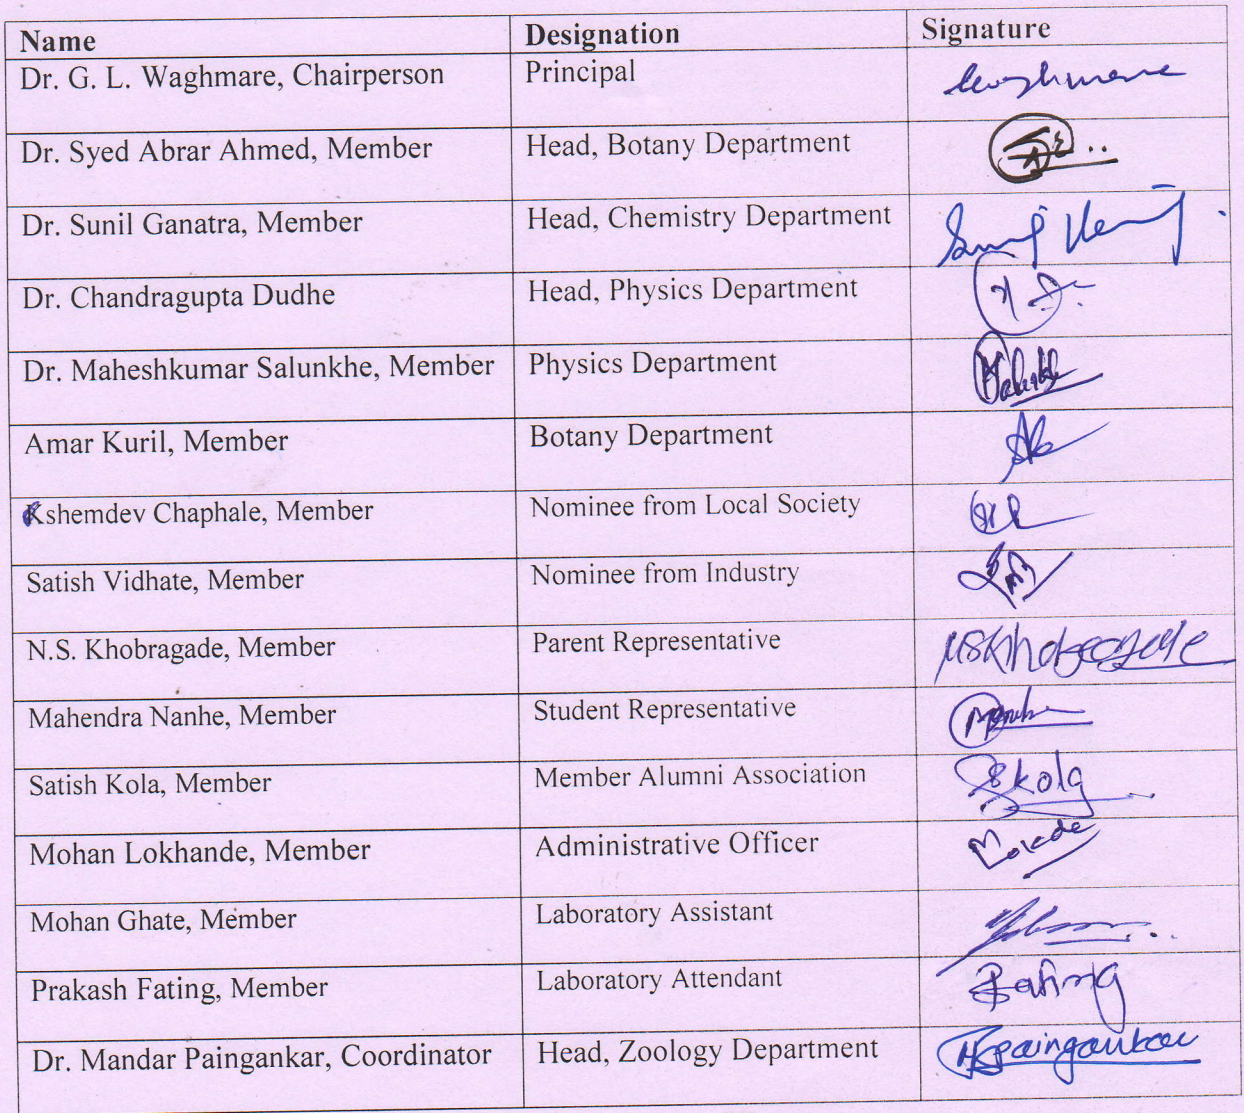 Name Designation Signature
Dr. G. L. Waghmare, Chairperson Principal Waghmare
Dr. Syed Abrar Ahmed, Member Head, Botany Department
Dr. Sunil Ganatra, Member Head, Chemistry Department
Dr. Chandragupta Dudhe Head, Physics Department
Dr. Maheshkumar Salunkhe, Member Physics Department
Amar Kuril, Member Botany Department
Kshemdev Chaphale, Member Nominee from Local Society
Satish Vidhate, Member Nominee from Industry
N.S. Khobragade, Member Parent Representative NSKhobragade
Mahendra Nanhe, Member Student Representative
Satish Kola, Member Member Alumni Association SKola
Mohan Lokhande, Member Administrative Officer
Mohan Ghate, Member Laboratory Assistant
Prakash Fating, Member Laboratory Attendant Fating
Dr. Mandar Paingankar, Coordinator Head, Zoology Department Paingankar